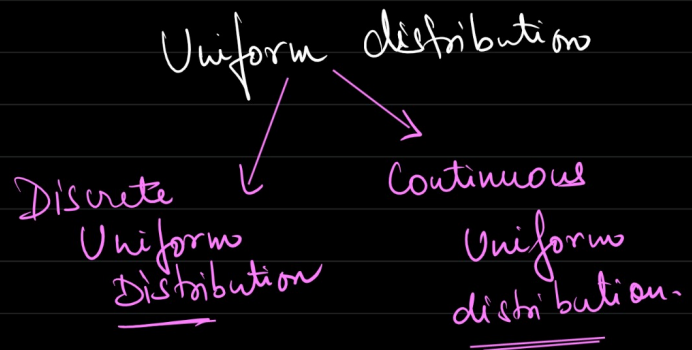 Uniform distribution
Discrete
Uniform
Distribution
Continuous
Uniform
distribution.